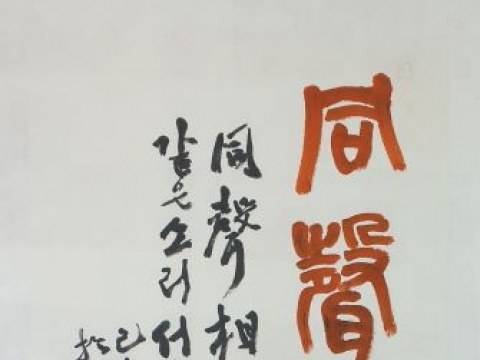 同聲
同聲相
같은소리서
己
於